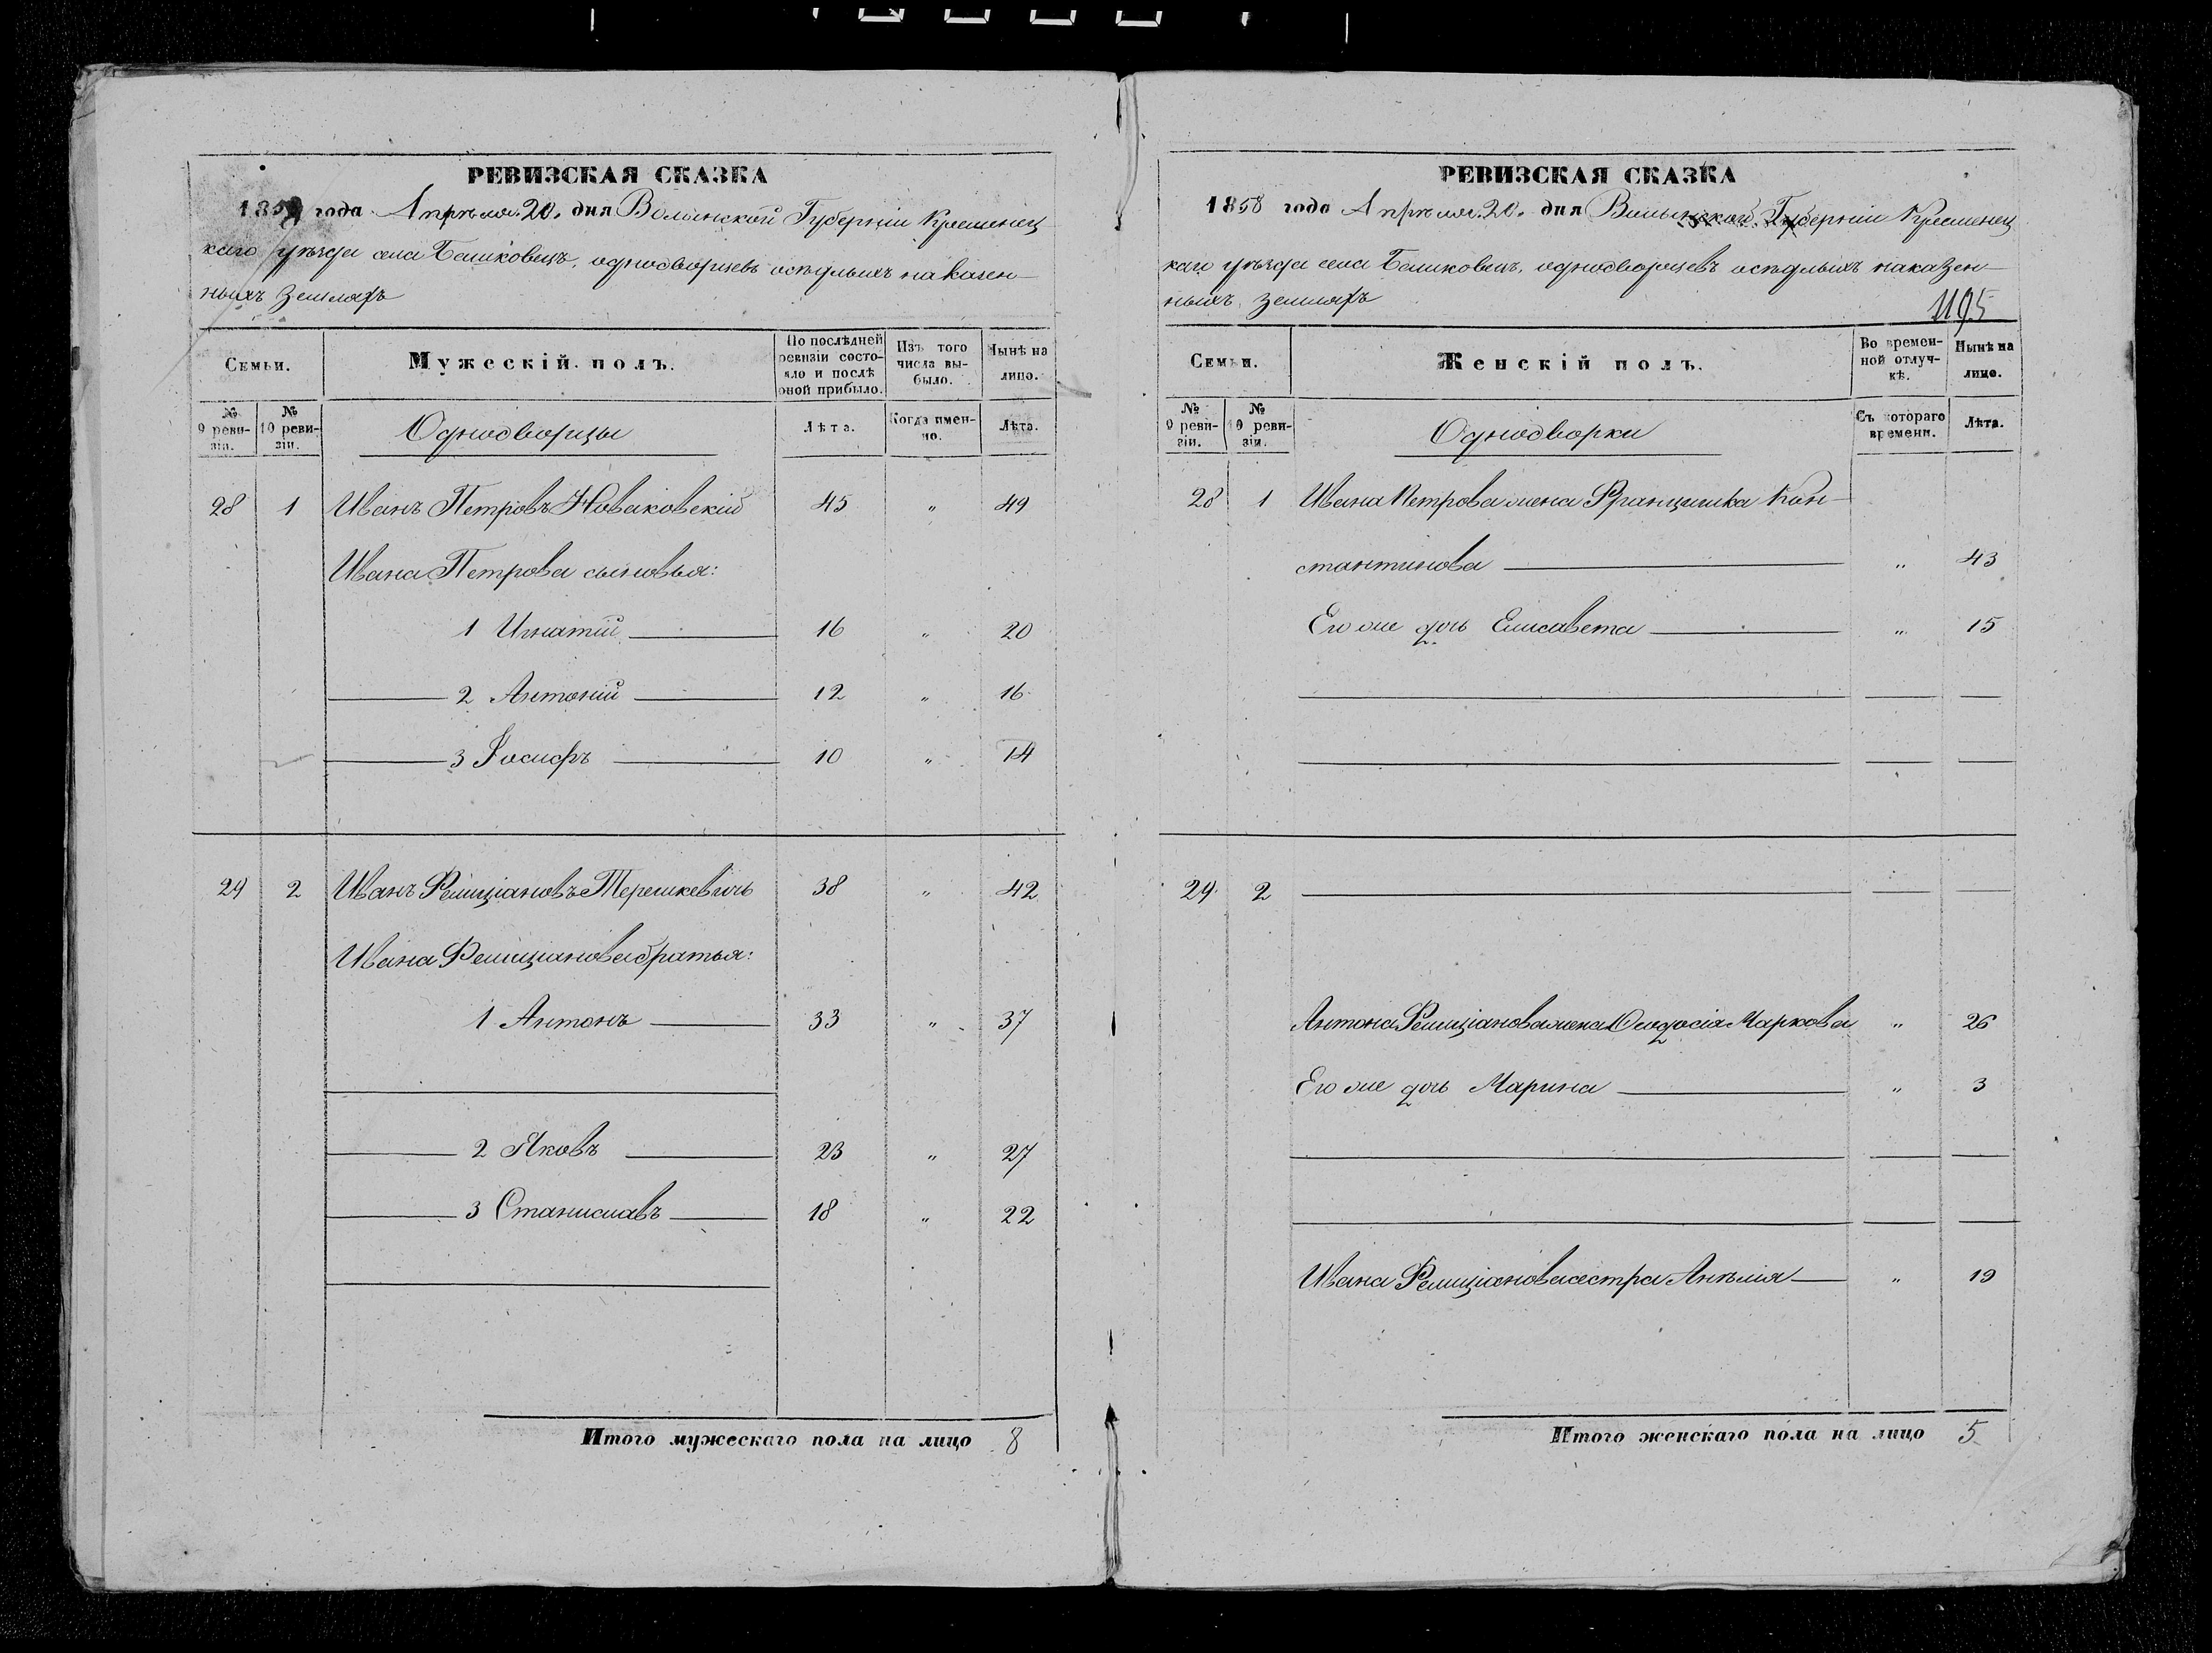 РЕВИЗСКАЯ СКАЗКА
1858 года Апрѣля 20. дня Волынской Губерніи Кременец
каго уѣзда села Башковецъ, однодворцевъ осѣдлыхъ на казен-
ныхъ земляхъ
Семьи. Мужескій полъ. По послѣдней ревизіи состояло и послѣ оной прибыло. Изъ того числа выбыло. Нынѣ на лицо.
№ 9 ревизіи. № 10 ревизіи. Однодворцы Лѣта. Когда именно. Лѣта.
28 1 Иванъ Петровъ Новаковскій 45 " 49
Ивана Петрова сыновья:
1 Игнатій 16 " 20
2 Антоній 12 " 16
3 Іосифъ 10 " 14
29 2 Иванъ Фелиціановъ Терешкевичь 38 " 42
Ивана Фелиціанова братья:
1 Антонъ 33 " 37
2 Яковъ 23 " 27
3 Станиславъ 18 " 22
Итого мужескаго пола на лицо 8
РЕВИЗСКАЯ СКАЗКА
1858 года Апрѣля 20. дня Волынской Губерніи Кременец
каго уѣзда села Башковецъ, однодворцевъ осѣдлыхъ на казен-
ныхъ земляхъ
1195
Семьи. Женскій полъ. Во временной отлучкѣ. Нынѣ на лицо.
№ 9 ревизіи. № 10 ревизіи. Однодворки Съ котораго времени. Лѣта.
28 1 Ивана Петрова жена Францишка Кон-
стантинова " 43
Его же дочь Елисавета " 15
29 2
Антона Фелиціанова жена Феодосія Маркова " 26
Его же дочь Марина " 3
Ивана Фелиціанова сестра Анѣлія " 19
Итого женскаго пола на лицо 5